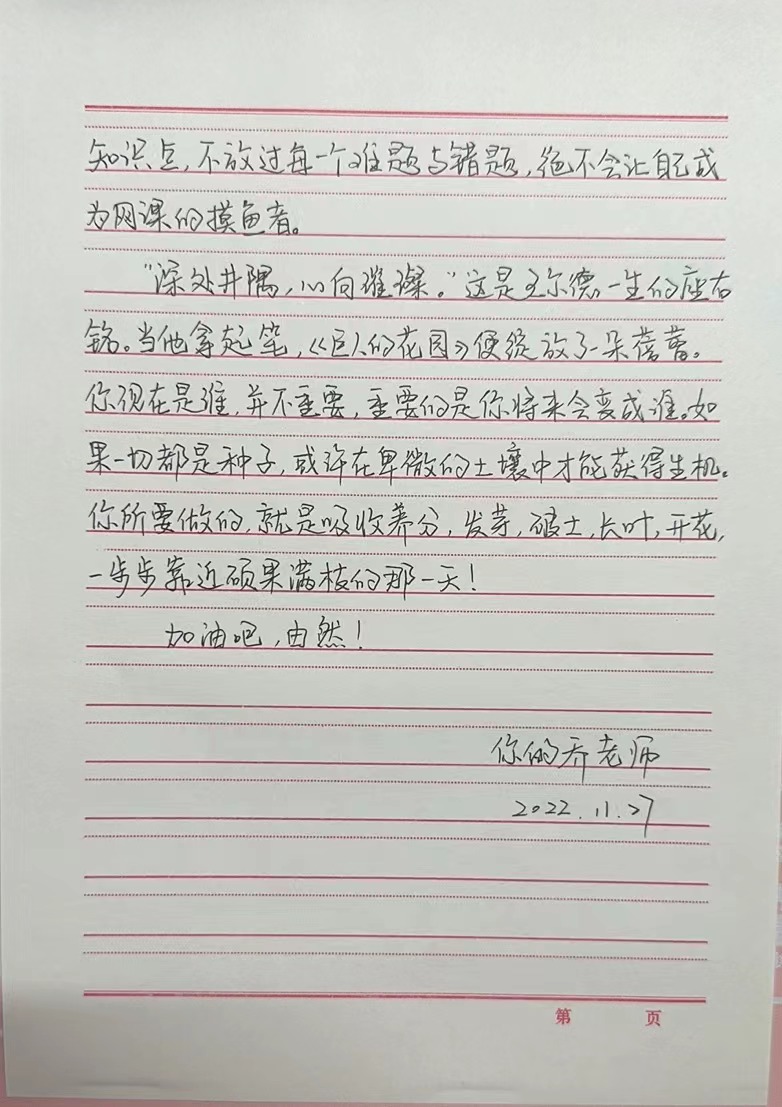 知识点，不放过每一个难题与错题，绝不会让自己成
为网课的摸鱼者。
“深处井隅，心向璀璨。”这是王尔德一生的座右
铭。当他拿起笔，《巨人的花园》便绽放了一朵蓓蕾。
你现在是谁，并不重要，重要的是你将来会变成谁。如
果一切都是种子，或许在卑微的土壤中才能获得生机。
你所要做的，就是吸收养分，发芽，破土，长叶，开花，
一步步靠近硕果满枝的那一天！
加油吧，由然！
你的乔老师
2022.11.27
第 页